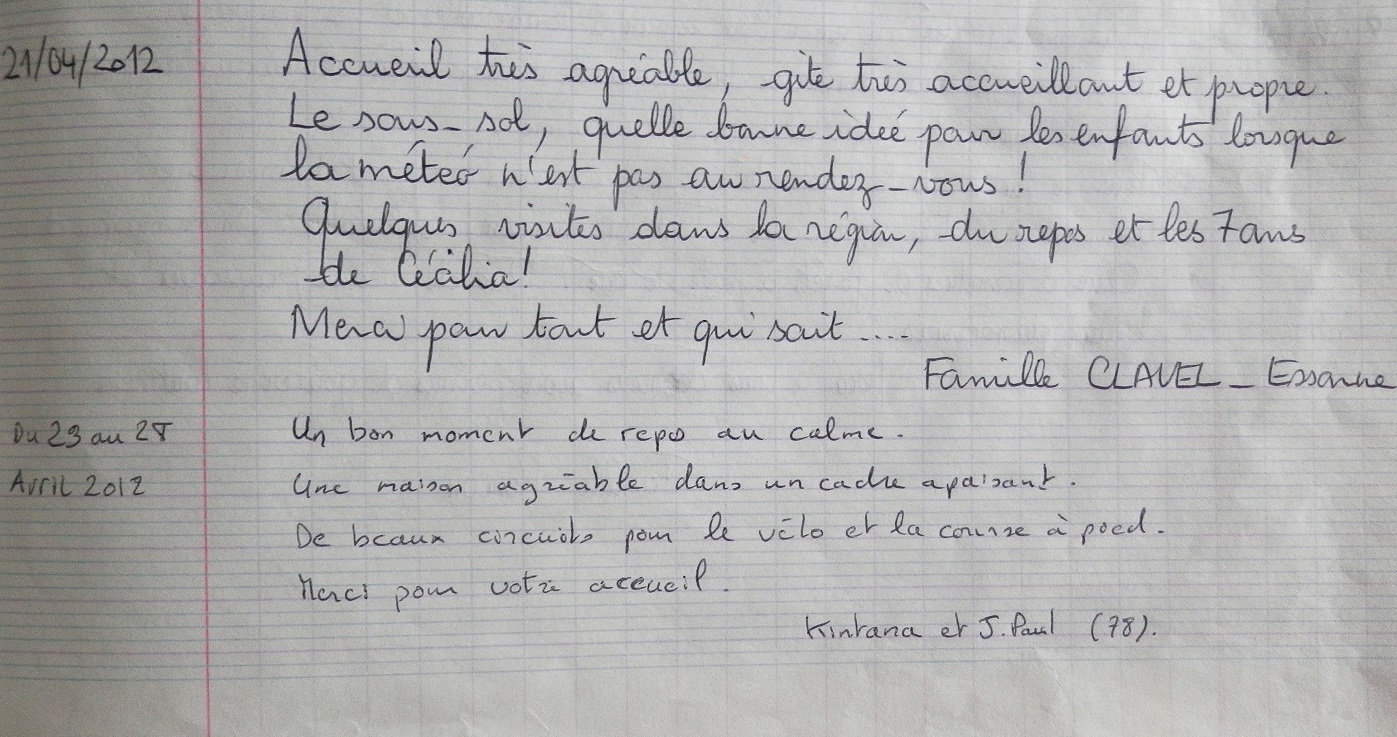 21/04/2012 Accueil très agréable, gite très accueillant et propre.
Le sous-sol, quelle bonne idée pour les enfants lorsque
la météo n'est pas au rendez-vous !
Quelques visites dans la région, du repos et les 7 ans
de Cécilia !
Merci pour tout et qui sait ....
Famille CLAVEL - Essonne
Du 23 au 28 Un bon moment de repos au calme.
Avril 2012 Une maison agréable dans un cadre apaisant.
De beaux circuits pour le vélo et la course à pied.
Merci pour votre acceuil.
Kintana et J. Paul (78).